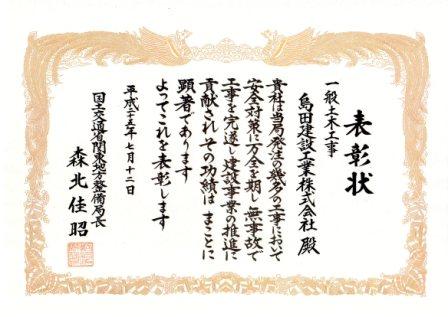 表彰状
一般土木工事
島田建設工業株式会社 殿
貴社は当局発注の幾多の工事において
安全対策に万全を期し無事故で
工事を完遂し建設事業の推進に
貢献されその功績は まことに
顕著であります
よってこれを表彰します
平成二十五年七月十二日
国土交通省関東地方整備局長
森北佳昭